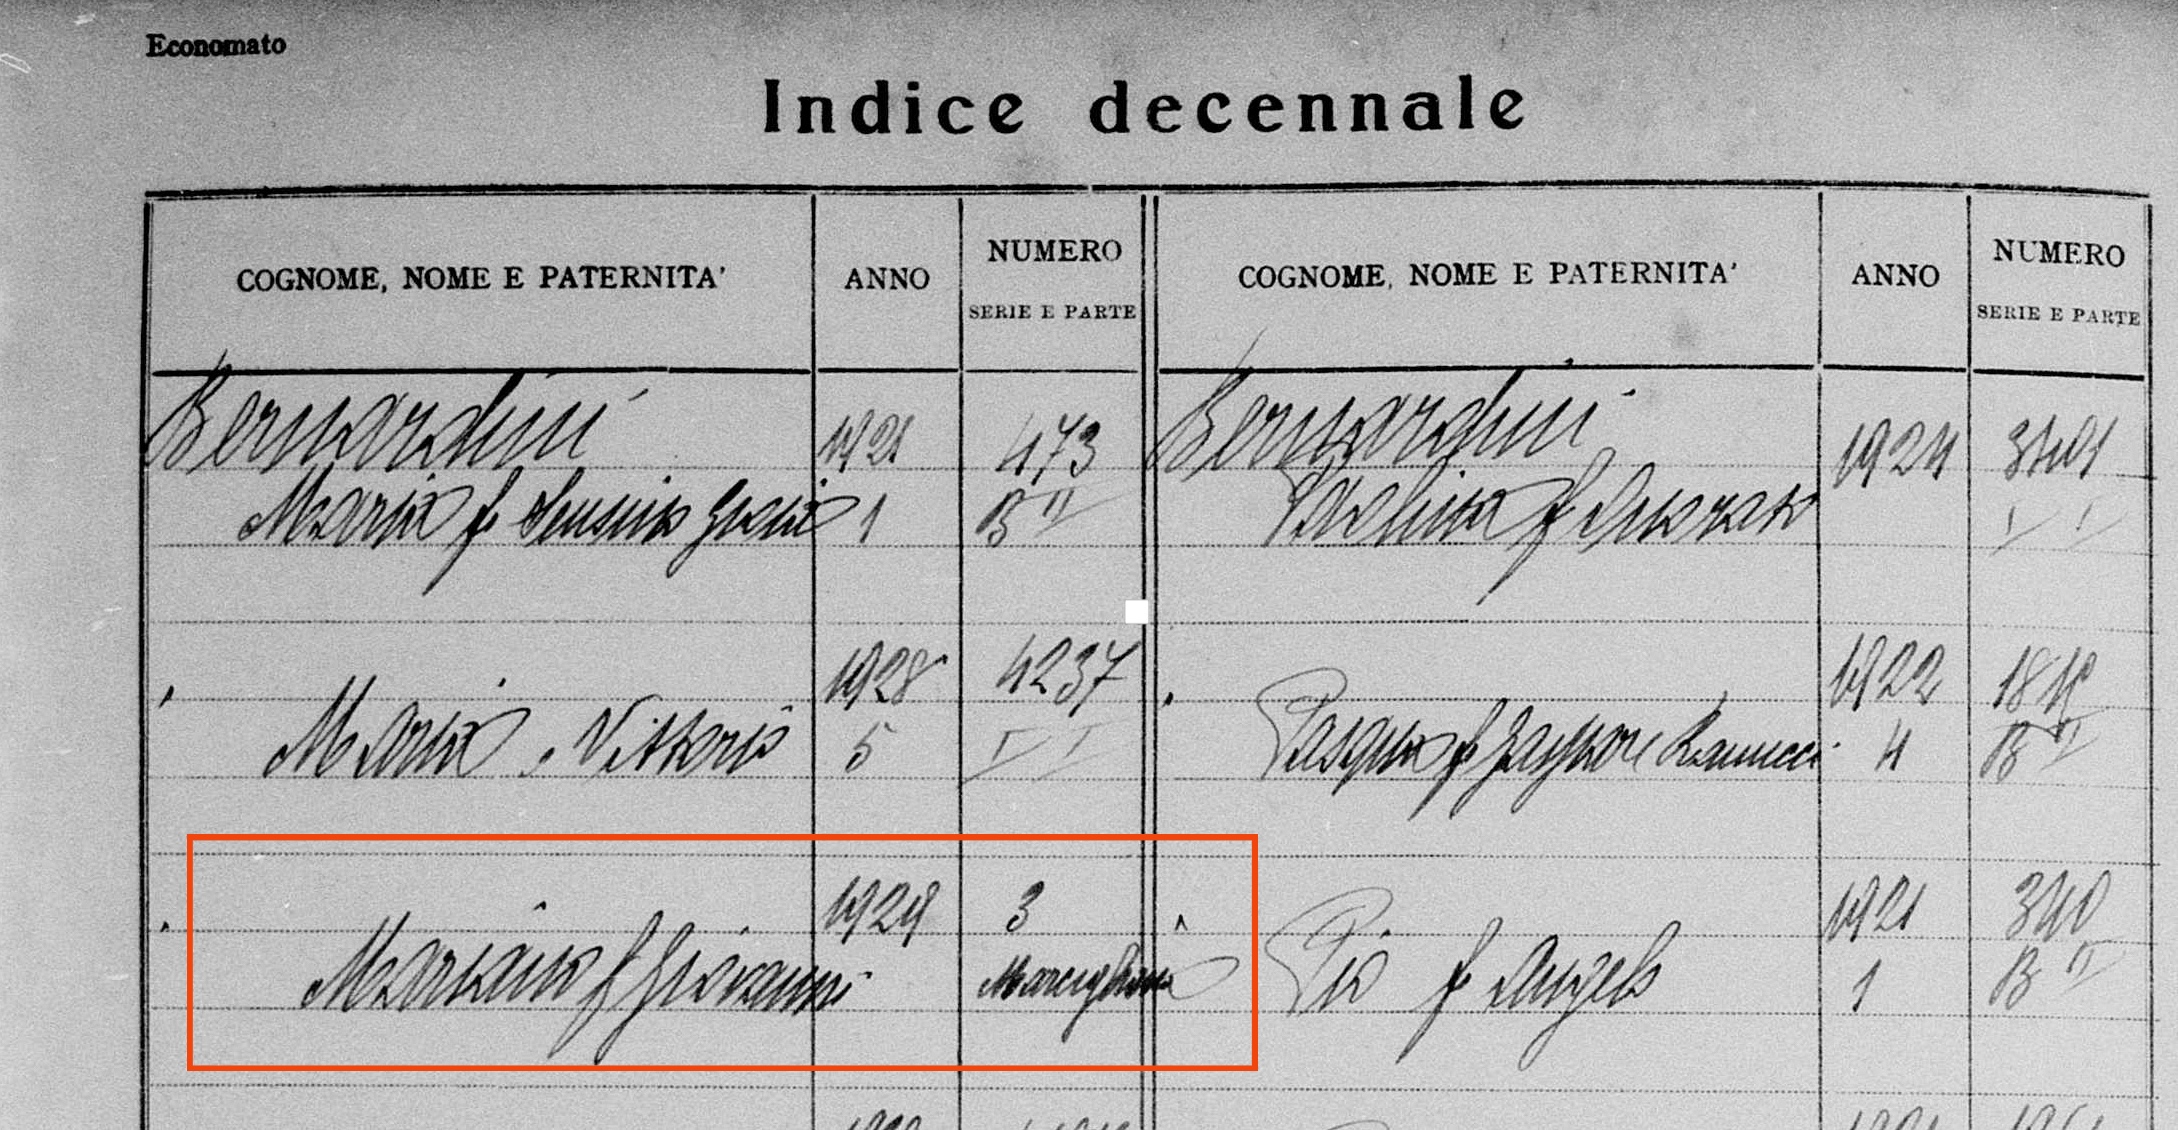 Economato
Indice decennale
COGNOME, NOME E PATERNITA'
ANNO
NUMERO
SERIE E PARTE
Bernardini
1921
473
Maria f.
1
B II
1928
4237
Maria " Vittorio
5
I I
1929
3
Mariano f Giovanni
Marcigliana
COGNOME, NOME E PATERNITA'
ANNO
NUMERO
SERIE E PARTE
Bernardini
1924
f Onorato
I I
1922
f Gaspare Ranucci
4
B II
1921
340
Pio f Angelo
1
B II